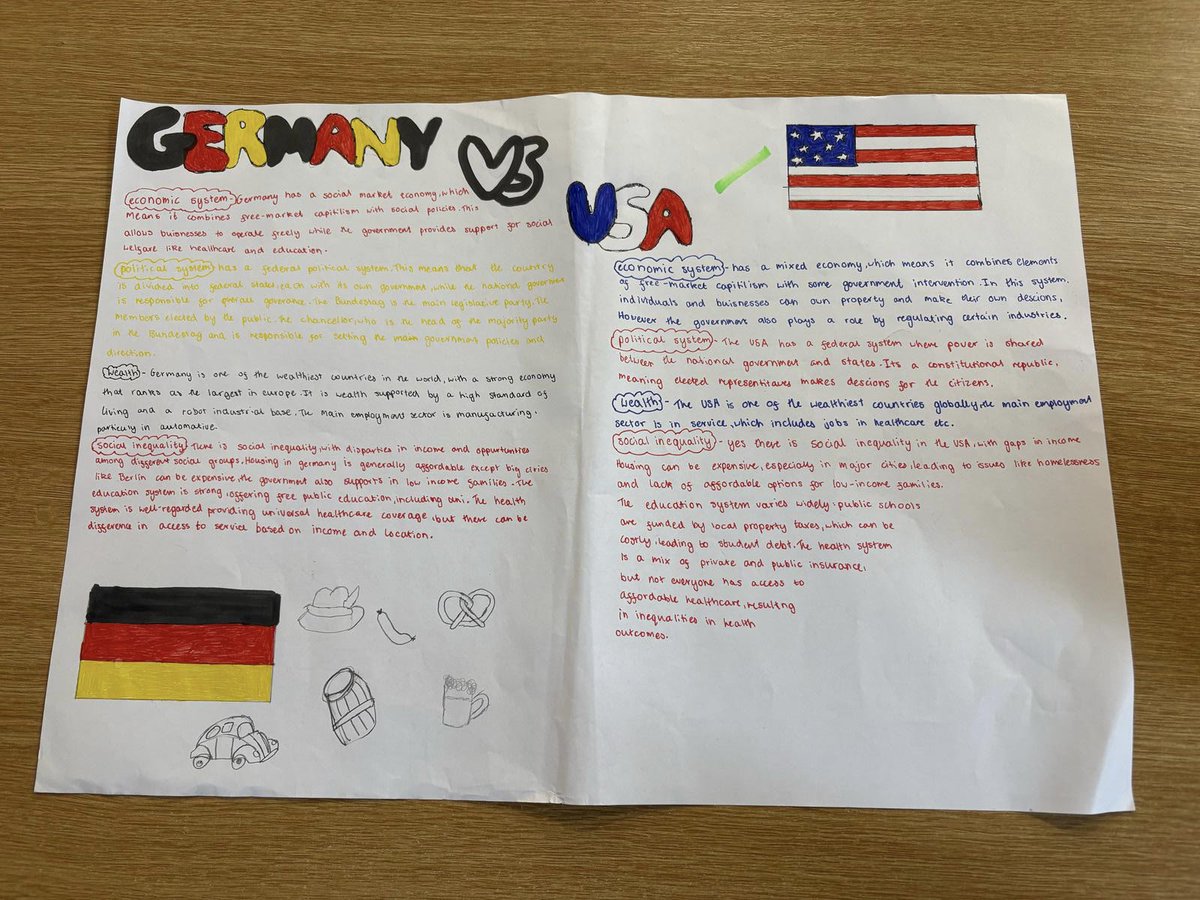 GERMANY
VS
economic system - Germany has a social market economy, which
means it combines free-market capitilism with social policies. This
allows buisnesses to operate freely while the government provides support for social
welfare like healthcare and education.
political system has a federal political system. This means that the country
is divided into federal states, each with its own government, while the national governmen
is responsible for overall goverance. The Bundestag is the main legislative party. The
members elected by the public. The chancellor, who is the head of the majority party
in the Bundestag and is responsible for setting the main government policies and
direction.
Wealth - Germany is one of the wealthiest countries in the world, with a strong economy
that ranks as the largest in europe. It is wealth supported by a high standard of
living and a robot industrial base. The main employment sector is manufacturing.
particuly in automative.
social inequality There is social inequality, with disparties in income and oppurtunties
among different social groups. Housing in germany is generally affordable except big cities
like Berlin can be expensive. the government also supports in low income families. The
education system is strong, offering free public education, including uni. The health
system is well-regarded providing universal healthcare coverage, but there can be
difference in access to service based on income and location.
USA
economic system - has a mixed economy, which means it combines elements
of free-market capitilism with some government intervention. In this system,
individuals and buisnesses can own property and make their own descions,
However the government also plays a role by regulating certain industries.
political system - The USA has a federal system where power is shared
between the national government and states. Its a constitutional republic,
meaning elected representitaves makes descions for the citizens.
Wealth - The USA is one of the wealthiest countries globally, the main employment
sector is in service, which includes jobs in healthcare etc.
social inequality - yes there is social inequality in the USA, with gaps in income
Housing can be expensive, especially in major cities, leading to issues like homelessness
and lack of affordable options for low-income families.
The education system varies widely. public schools
are funded by local property taxes, which can be
costly, leading to student debt. The health system
is a mix of private and public insurance,
but not everyone has access to
affordable healthcare, resulting
in inequalities in health
outcomes.